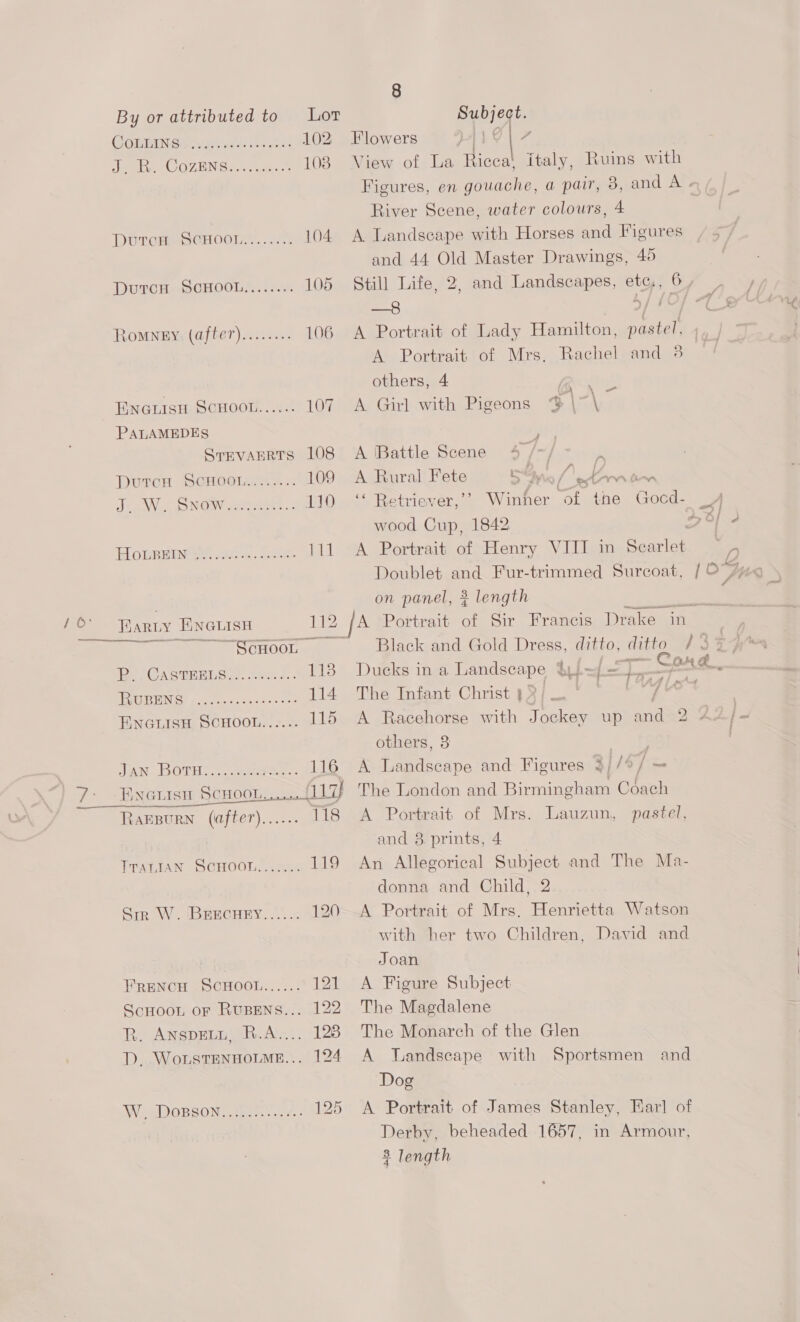 8
By or attributed to Lot Subject.
COLLINS............... 102 Flowers
J. R. COZENS.......... 103 View of La Ricca, Italy, Ruins with
Figures, en gouache, a pair, 3, and A
River Scene, water colours, 4
DUTCH SCHOOL........ 104 A Landscape with Horses and Figures
and 44 Old Master Drawings, 45
DUTCH SCHOOL........ 105 Still Life, 2, and Landscapes, etc., 6,
—8
ROMNEY (after)........ 106 A Portrait of Lady Hamilton, pastel,
A Portrait of Mrs. Rachel and 3
others, 4
ENGLISH SCHOOL...... 107 A Girl with Pigeons
PALAMEDES
STEVAERTS 108 A Battle Scene
DUTCH SCHOOL........ 109 A Rural Fete
J. W. SNOW............ 110 “Retriever,” Winner of the Good-
wood Cup, 1842
HOLBEIN ............... 111 A Portrait of Henry VIII in Scarlet
Doublet and Fur-trimmed Surcoat,
on panel, ¾ length
EARLY ENGLISH 112 A Portrait of Sir Francis Drake in
SCHOOL Black and Gold Dress, ditto, ditto
P. CASTEELS........... 113 Ducks in a Landscape
RUBENS ............... 114 The Infant Christ
ENGLISH SCHOOL...... 115 A Racehorse with Jockey up and 2
others, 3
JAN BOTH.............. 116 A Landscape and Figures
7. ENGLISH SCHOOL...... 117 The London and Birmingham Coach
RAEBURN (after)...... 118 A Portrait of Mrs. Lauzun, pastel,
and 3 prints, 4
ITALIAN SCHOOL....... 119 An Allegorical Subject and The Ma-
donna and Child, 2
SIR W. BEECHEY...... 120 A Portrait of Mrs. Henrietta Watson
with her two Children, David and
Joan
FRENCH SCHOOL...... 121 A Figure Subject
SCHOOL OF RUBENS... 122 The Magdalene
R. ANSDELL, R.A.... 123 The Monarch of the Glen
D. WOLSTENHOLME... 124 A Landscape with Sportsmen and
Dog
W. DOBSON............ 125 A Portrait of James Stanley, Earl of
Derby, beheaded 1657, in Armour,
¾ length